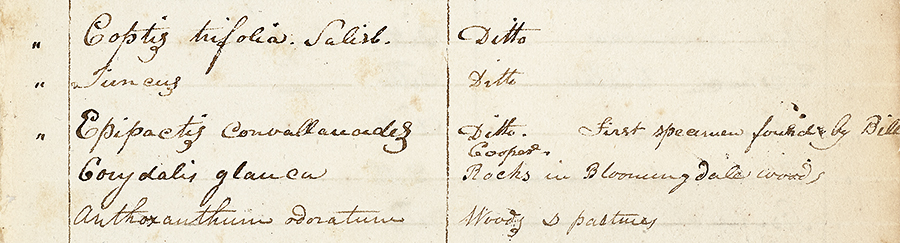 " Coptis trifolia. Salisb. Ditto
" Juncus Ditto
" Epipactis convallarioides Ditto. First specimen found by Bill
Cooper.
Corydalis glauca Rocks in Bloomingdale woods
Anthoxanthum odoratum Woods & pastures